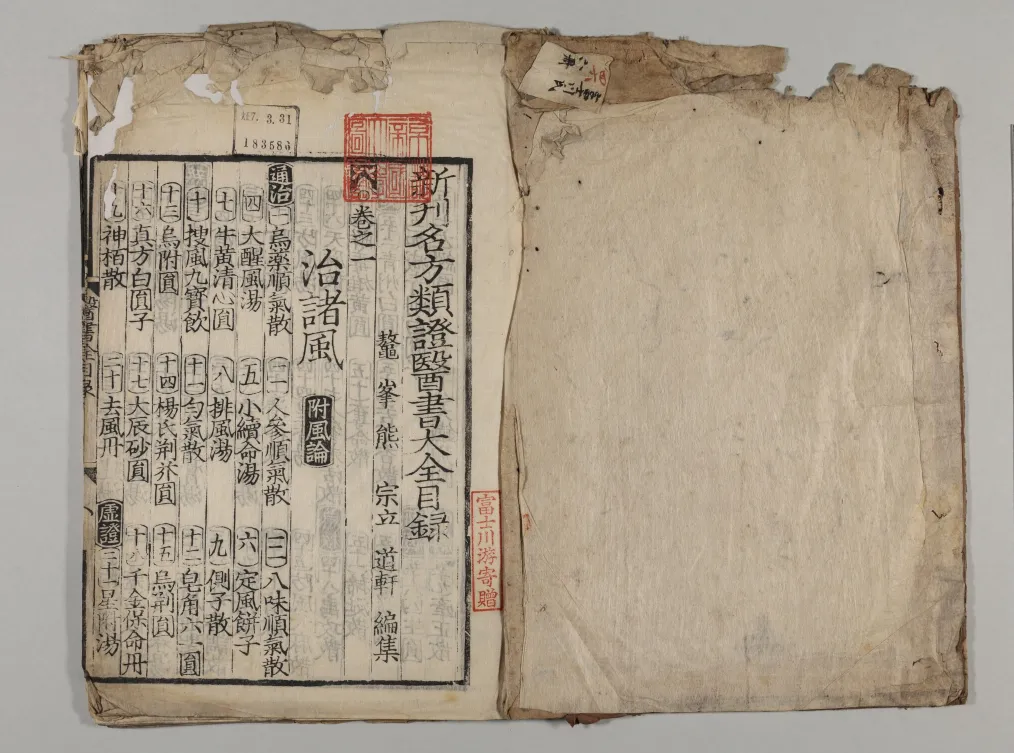 新刊名方類證醫書大全目録
鼇峯熊 宗立 道軒 編集
卷之一
治諸風 附風論
通治 一 烏藥順氣散 二 人參順氣散 三 八味順氣散
四 大醒風湯 五 小續命湯 六 定風餅子
七 牛黃清心圓 八 排風湯 九 側子散
十 搜風九寶飲 十一 勻氣散 十二 皂角六一圓
十三 烏附圓 十四 楊氏荆芥圓 十五 烏荆圓
十六 真方白圓子 十七 大辰砂圓 十八 千金保命丹
十九 神栢散 二十 去風丹 虛證 二十一 星附湯
醫書全目录
富士川游寄贈
3.31
183586